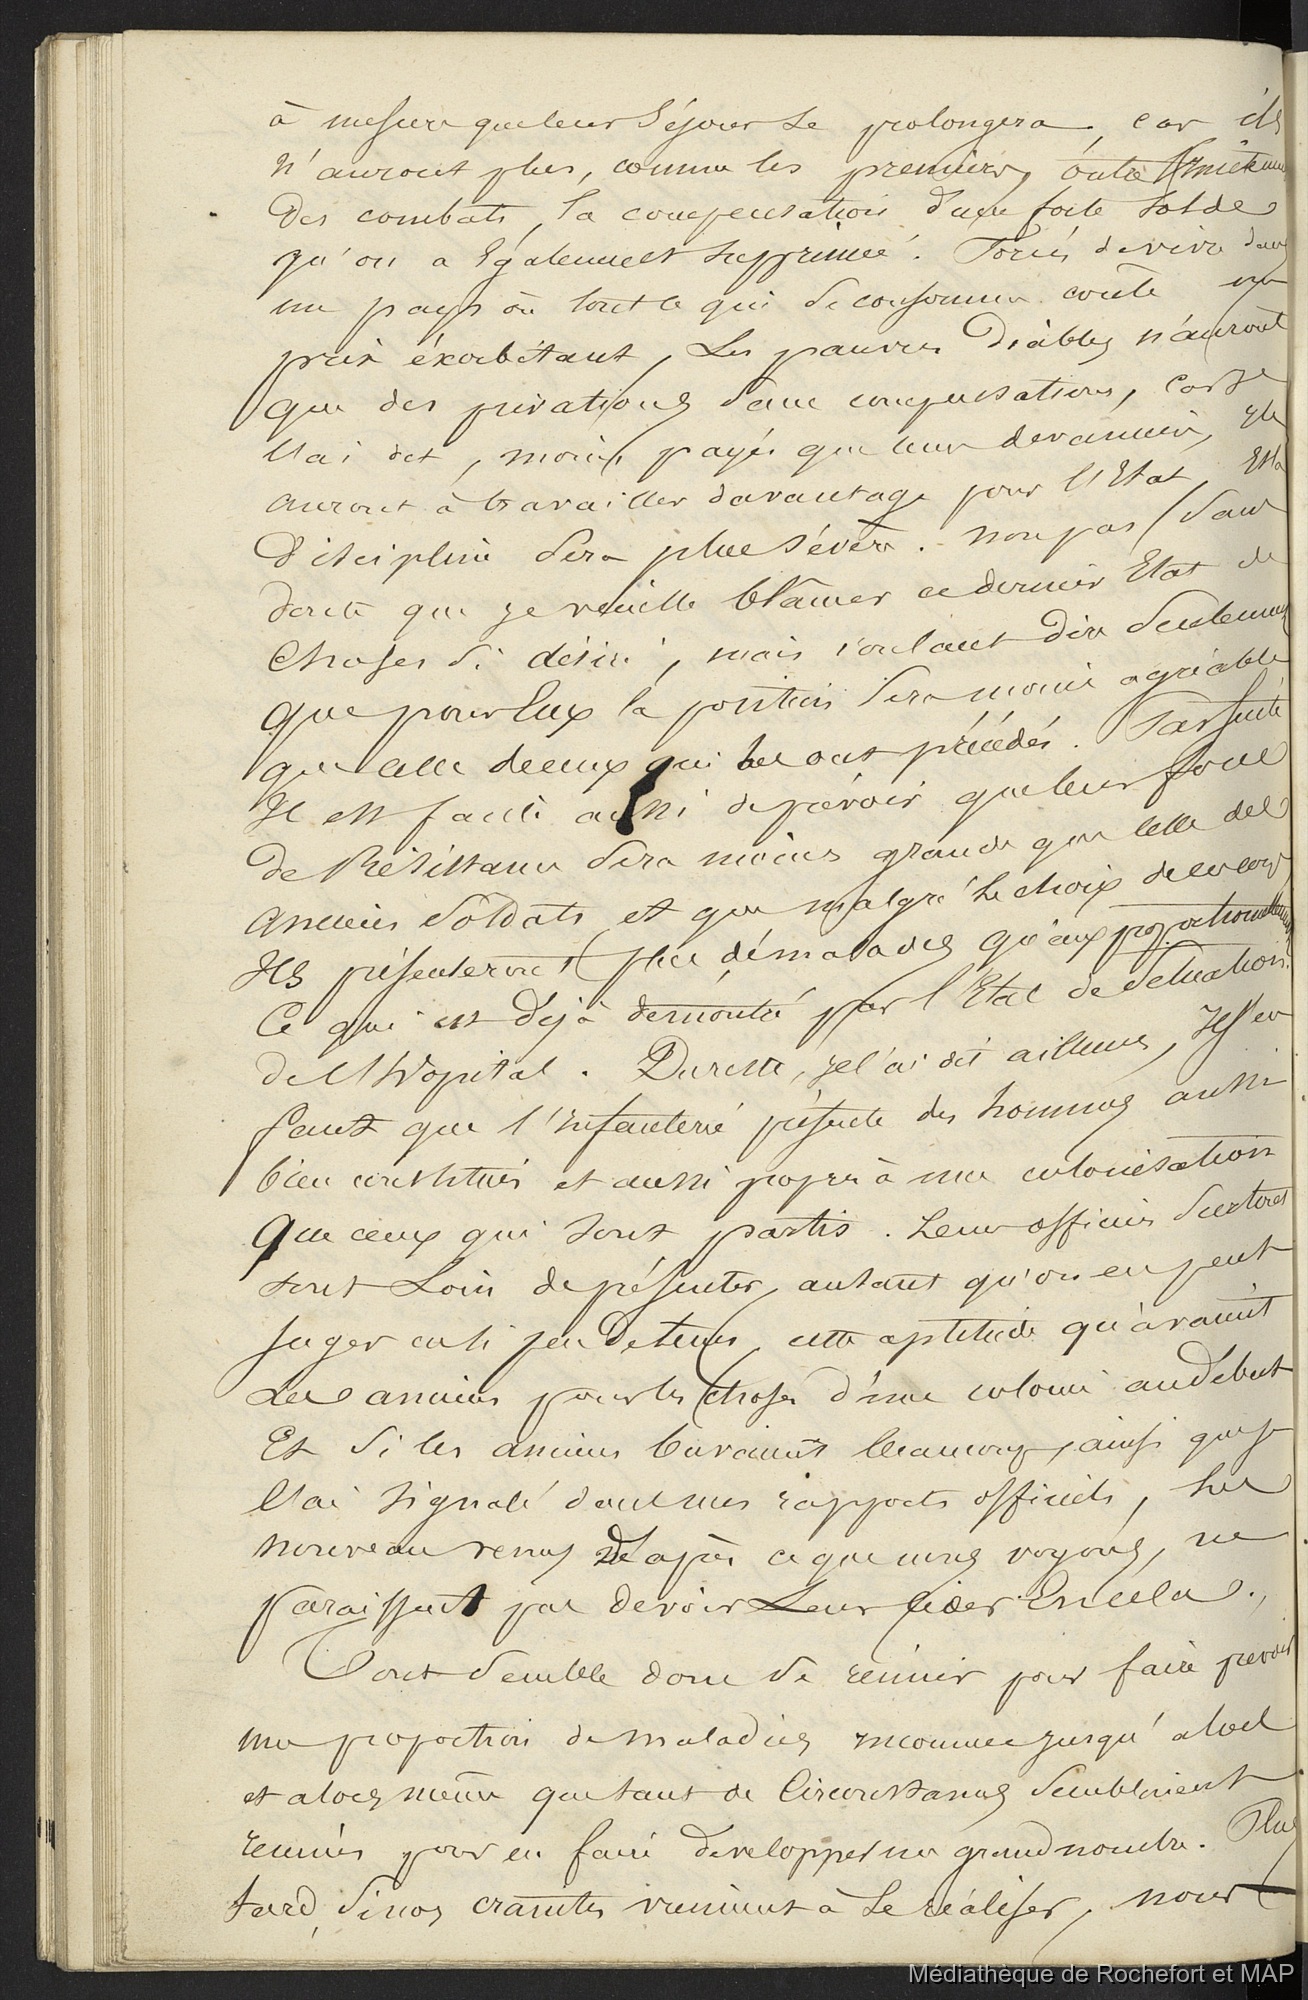 à mesure que leur Séjour se prolongera, car ils
n'auront plus, comme les premiers, outre
Des combats, la compensation d'une forte solde
qu'on a Egalement supprimée. Forcés de vivre dans
un pays où tout ce qui se consomme coûte un
prix éxorbitant, Les pauvres Diables n'auront
que des privations sans compensations, car je
l'ai dit, moins payés que leur devancier, Ils
auront à travailler davantage pour l'Etat, Et la
Discipline Sera plus sévère. non pas Sans
doute que je veuille blâmer ce dernier Etat de
Choses Si désiré, mais voulant Dire Seulement
que pour Eux la position Sera moins agréable
que celle de ceux qui les ont précédés. Par suite
Il est facile aussi de prévoir que leur force
De Résistance Sera moins grande que celle des
anciens Soldats et que malgré le choix de ce corps
Ils présenteront plus de malades qu'eux proportionnellement
Ce qui est Déjà démontré par l'Etat de Situation
De l'hôpital. Du reste, je l'ai dit ailleurs, Il s'en
faut que l'infanterie présente des hommes aussi
bien constitués et aussi propres à une colonisation
que ceux qui sont partis. Leurs officiers Surtout
sont Loin de présenter, autant qu'on en peut
juger en si peu de tems, cette aptitude qu'avaient
Les anciens pour les choses d'une colonie au début
Et Si les anciens buvaient beaucoup, ainsi que je
l'ai signalé dans mes rapports officiels, les
nouveau venus D'après ce que nous voyons, ne
paraissent pas devoir Leur céder En cela.
Tout Semble donc se réunir pour faire prévoir
une proportion de maladies inconnue jusqu'alors
et alors même que tant de Circonstances Semblaient
réunies pour en faire développer un grand nombre. Plus
tard, Si nos craintes viennent à se réaliser, nous
Médiathèque de Rochefort et MAP